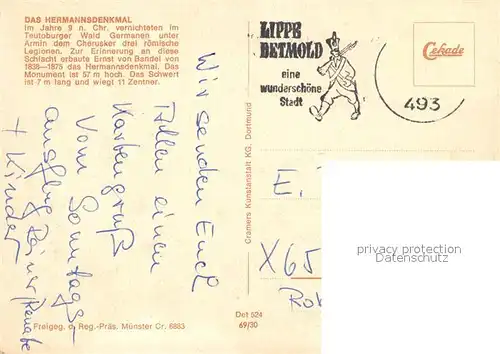 DAS HERMANNSDENKMAL
Im Jahre 9 n. Chr. vernichteten im
Teutoburger Wald Germanen unter
Armin dem Cherusker drei römische
Legionen. Zur Erinnerung an diese
Schlacht erbaute Ernst von Bandel von
1838—1875 das Hermannsdenkmal. Das
Monument ist 57 m hoch. Das Schwert
ist 7 m lang und wiegt 11 Zentner.
Wir senden Euch
Allen einen
Kartengruß
Vom Sonntags-
ausflug Reiner, Renate
+ Kinder
Freigeg. d. Reg.-Präs. Münster Cr. 6883
Det 524
69/30
Cramers Kunstanstalt KG, Dortmund
LIPPE
DETMOLD
eine
wunderschöne
Stadt
493
Cekade
E.
X65
privacy protection